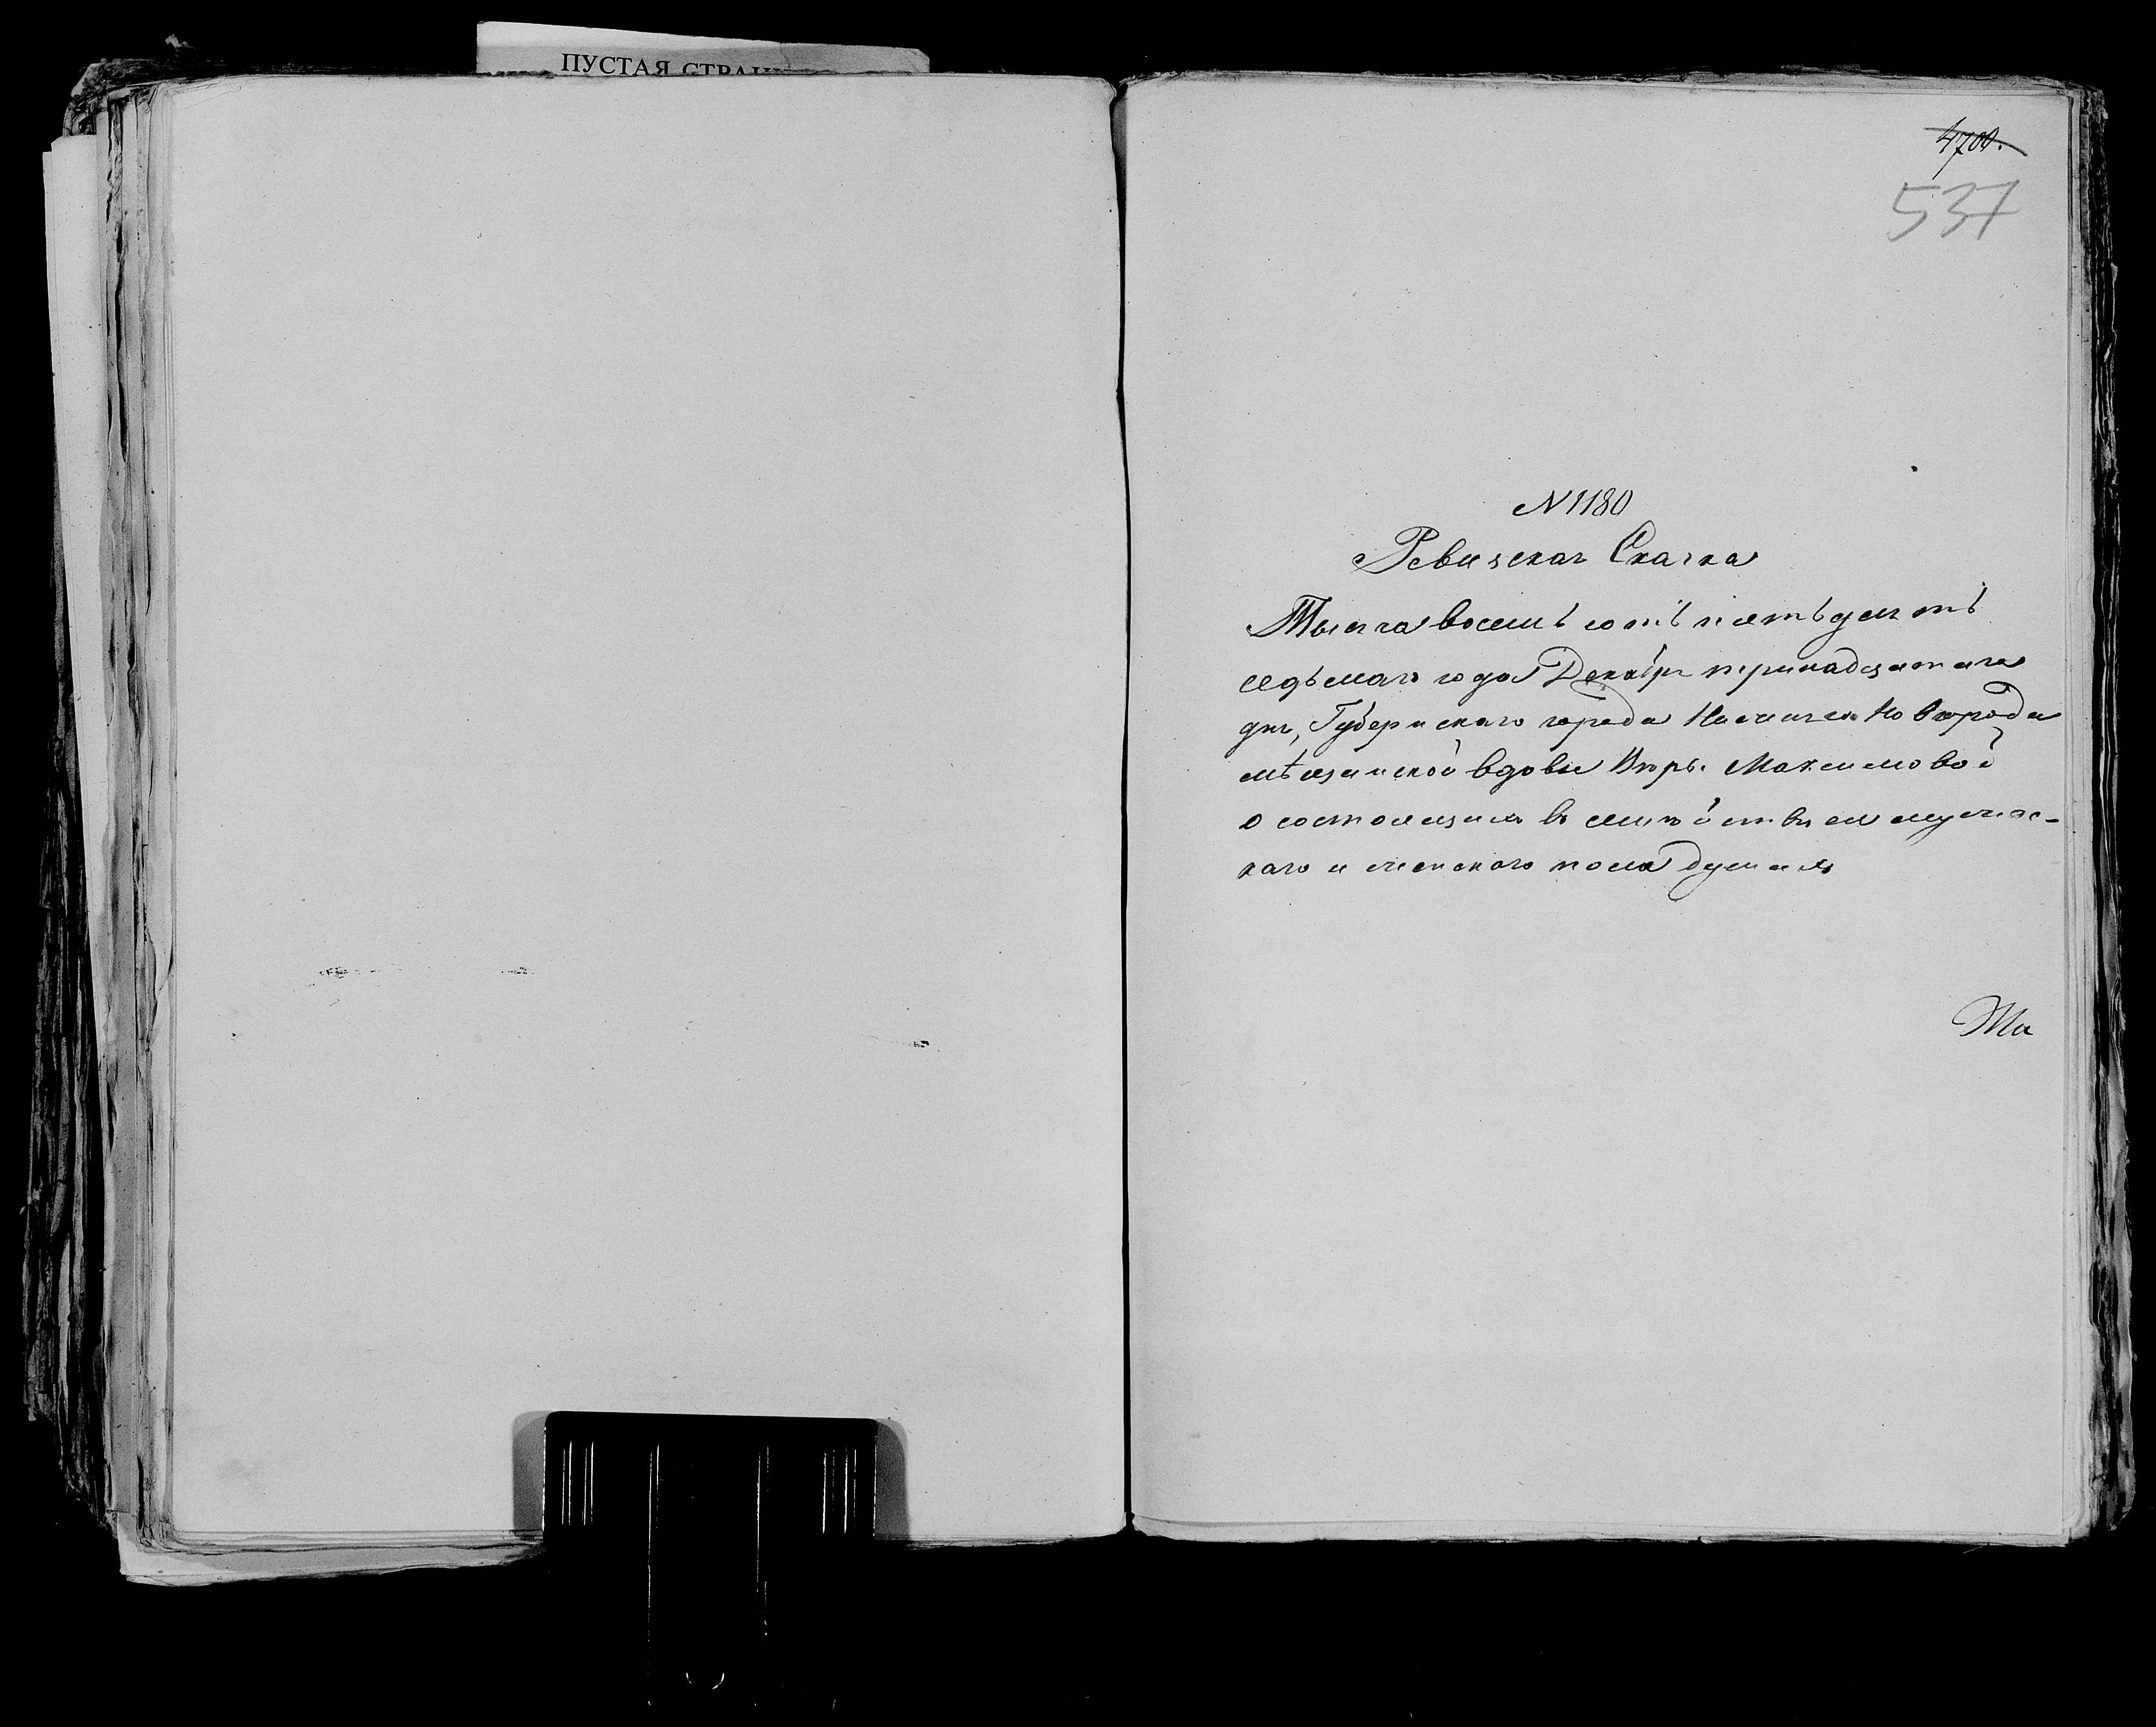 ПУСТАЯ СТРАНИ
4700.
537
N 1180
Ревизская Сказка
Тысяча восемь сотъ пятьдесятъ
седьмаго года Декабря тринадцатаго
дня, Губернскаго города Нижняго Новгорода
мѣщанской вдовы Максимовой
о состоящихъ въ семействѣ ея мужес-
каго и женскаго пола душахъ